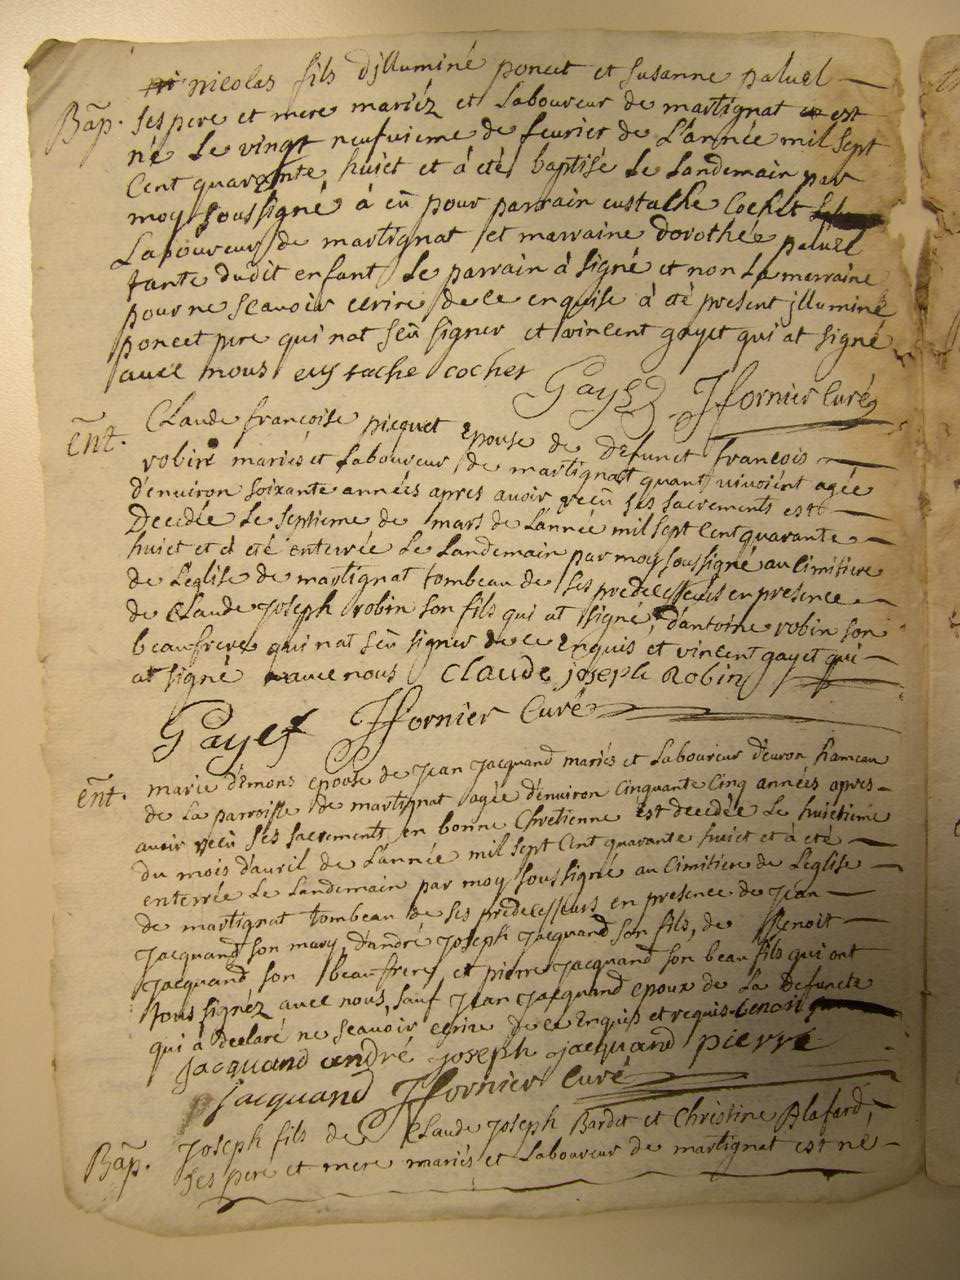 nicolas fils d'jlluminé poncet et susanne paluel
Bap. ses pere et mere mariéz et Laboureur de martignat est
né Le vingt neufuieme de feurier de L'année mil sept
Cent quarante huict et à été baptisé Le Landemain par
moy soussigné à eü pour parrain eustache Cochet
Laboureur de martignat et marraine dorothée paluel
tante dudit enfant Le parrain à signé et non La marraine
pour ne scauoir ecrire de ce enquise à été present jlluminé
poncet pere qui nat seü signer et vincent gayet qui at signé
auec nous eustache cochet
Gayet JFornier Curé
Ent. CLaude françoise picquet epouse de defunct francois
robin mariés et Laboureur de martignat quant viuoient agée
d'enuiron soixante années apres auoir reçeü ses sacrements est
Decedée Le septieme de mars de L'année mil sept Cent quarante
huict et à été enterrée Le Landemain par moy soussigné au Cimitiere
de L'eglise de martignat tombeau de ses predecesseurs en presence
de CLaude Joseph robin son fils qui at signé, d'antoine robin son
beaufrere qui nat seü signer de ce Enquis et vincent gayet qui
at signé auec nous CLaude joseph Robin
Gayet JFornier Curé
Ent. marie d'émons epouse de Jean Jacquand mariés et Laboureur d'euron hameau
de La parroisse de martignat agée d'enuiron Cinquante Cinq années apres
auoir reçeü ses sacrements en bonne Chretienne est decedée Le huictieme
du mois d'auril de L'année mil sept Cent quarante huict et à été
enterrée Le Landemain par moy soussigné au Cimitiere de L'eglise
de martignat tombeau de ses predecesseurs en presence de Jean
Jacquand son mary, d'andré Joseph Jacquand son fils, de Benoit
Jacquand son beaufrere, et pierre Jacquand son beau fils qui ont
tous signéz auec nous, sauf Jean Jacquand epoux de La defuncte
qui à declaré ne scauoir ecrire de ce Enquis et requis benoit
jacquand andré joseph jacquand pierre
jacquand JFornier Curé
Bap. Joseph fils de CLaude Joseph Bardet et Christine Plafard,
ses pere et mere mariés et Laboureur de martignat est né